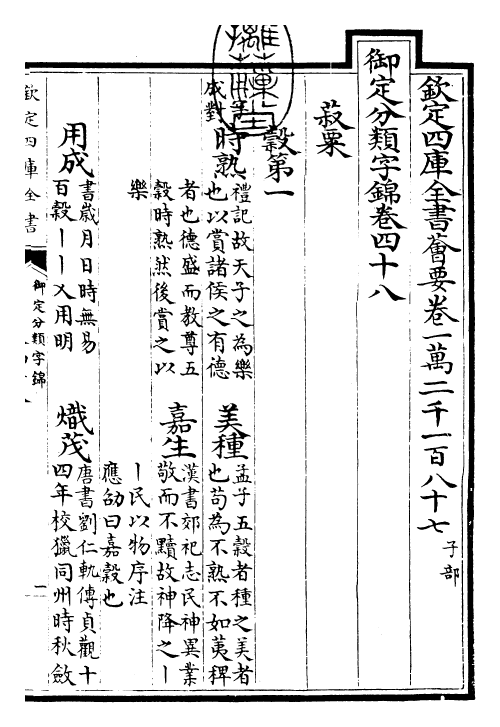 欽定四庫全書薈要卷一萬二千一百八十七 子部
御定分類字錦卷四十八
菽粟
穀第一
成對
時熟
禮記故天子之為樂
也以賞諸侯之有德
者也德盛而教尊五
穀時熟然後賞之以
樂
美種
孟子五穀者種之美者
也苟為不熟不如荑稗
嘉生
漢書郊祀志民神異業
敬而不黷故神降之丨
丨民以物序注
應劭曰嘉穀也
用成
書歲月日時無易
百穀丨丨乂用明
熾茂
唐書劉仁軌傳貞觀十
四年校獵同州時秋斂
欽定四庫全書
御定分類字錦
一